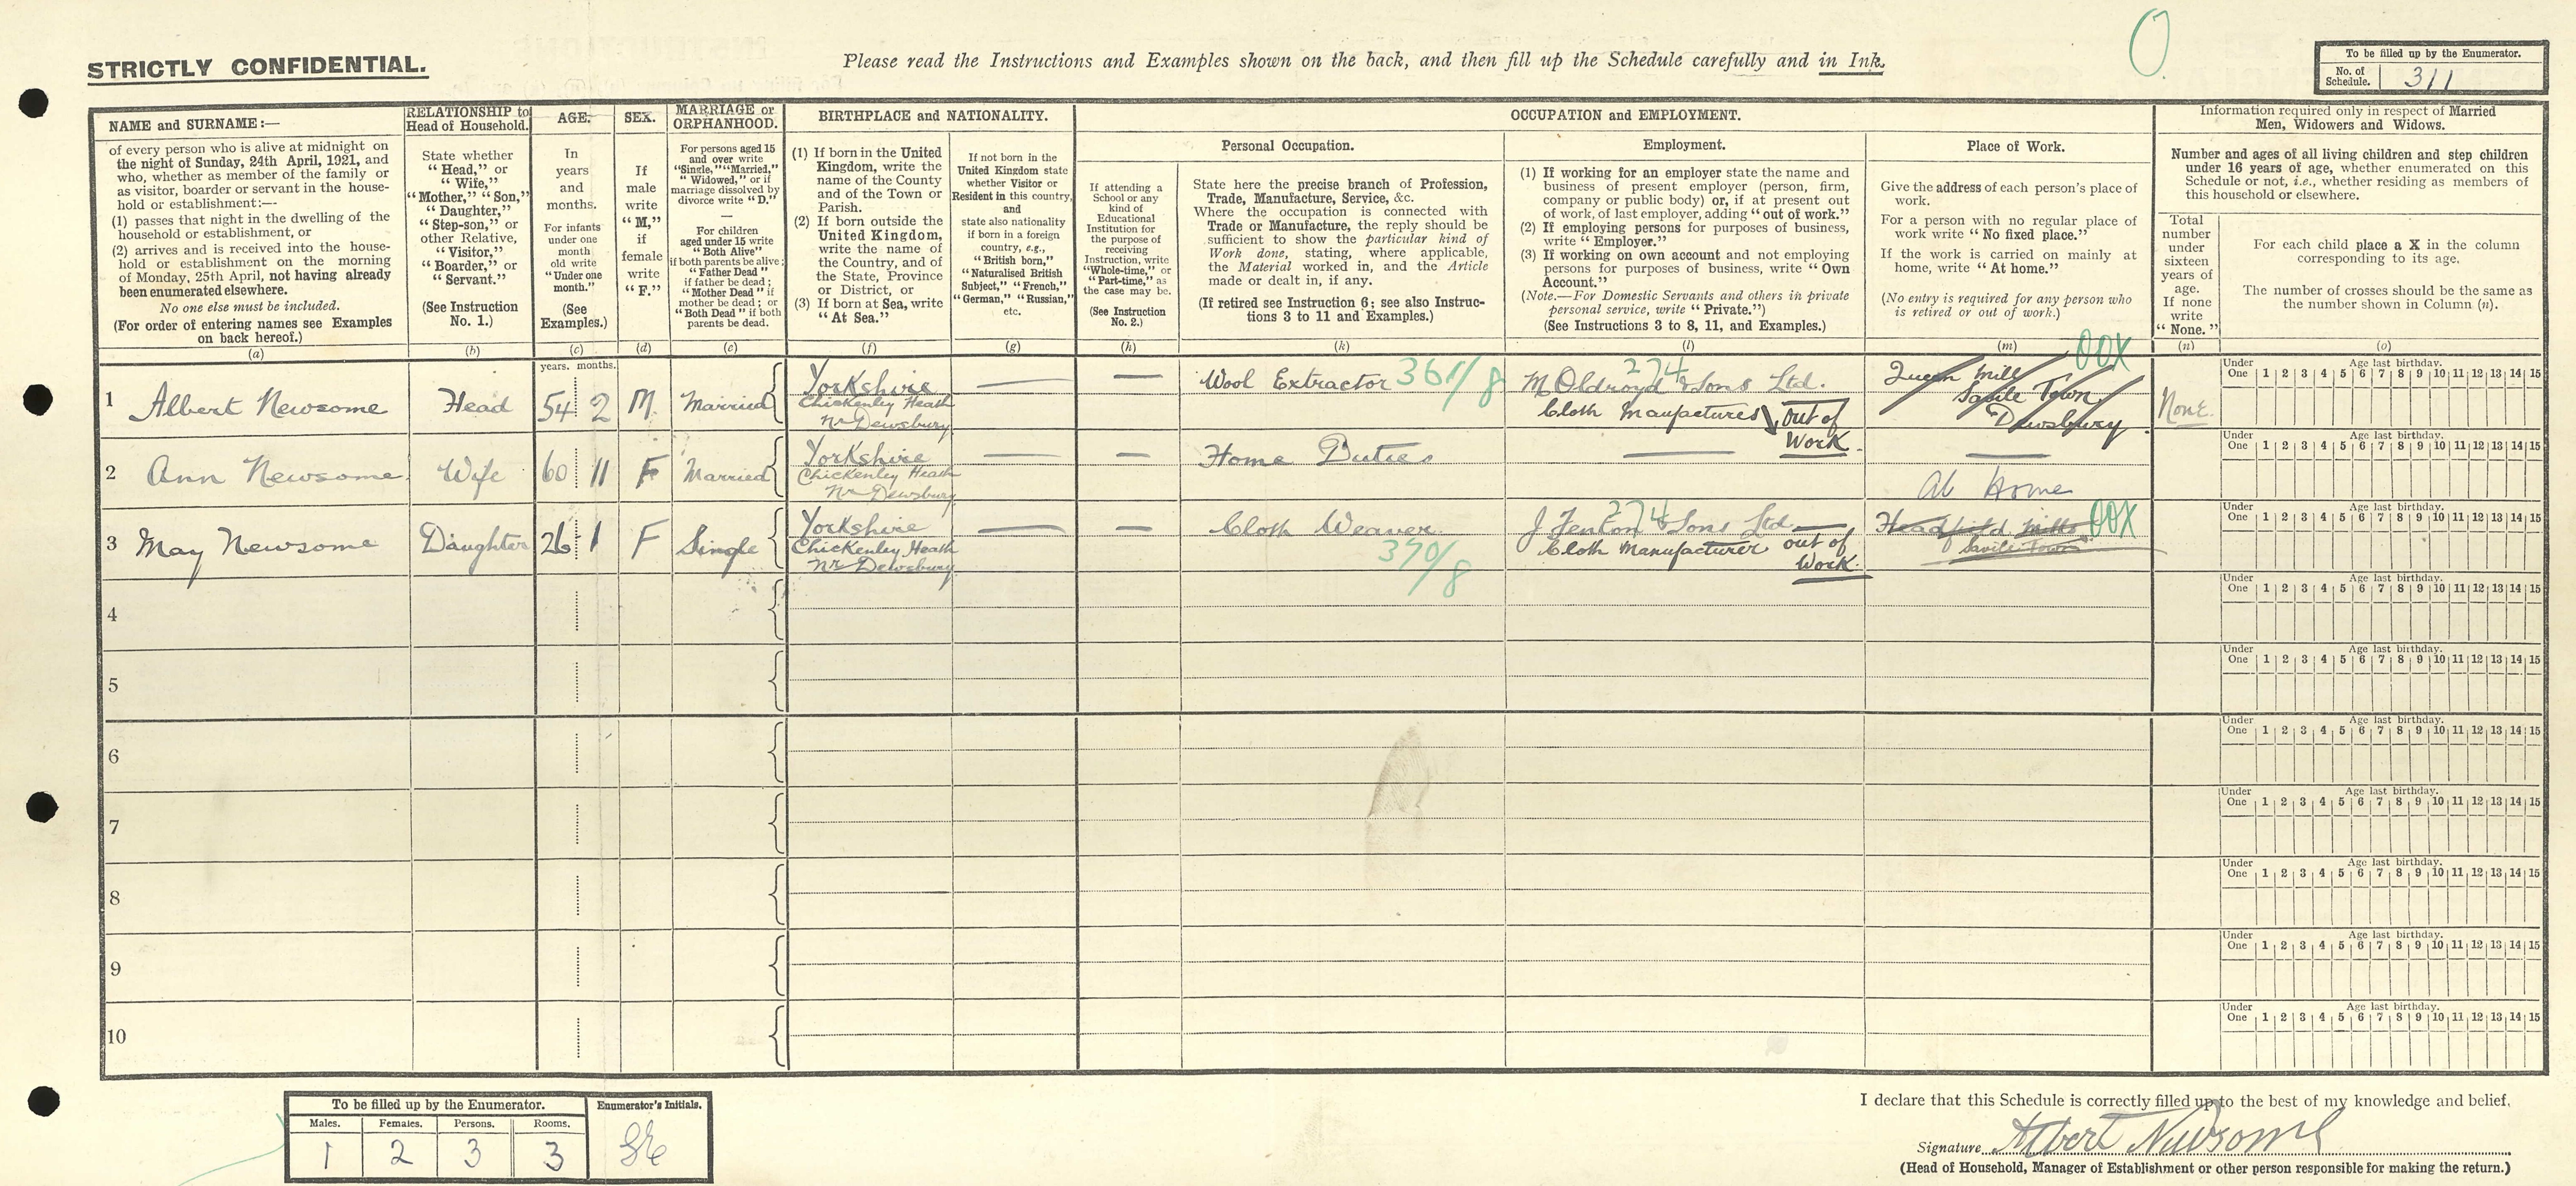 STRICTLY CONFIDENTIAL.
Please read the Instructions and Examples shown on the back, and then fill up the Schedule carefully and in Ink.
To be filled up by the Enumerator.
No. of Schedule. 311
NAME and SURNAME:—
of every person who is alive at midnight on
the night of Sunday, 24th April, 1921, and
who, whether as member of the family or
as visitor, boarder or servant in the house-
hold or establishment:—
(1) passes that night in the dwelling of the
household or establishment, or
(2) arrives and is received into the house-
hold or establishment on the morning
of Monday, 25th April, not having already
been enumerated elsewhere.
No one else must be included.
(For order of entering names see Examples
on back hereof.)
(a)
RELATIONSHIP to
Head of Household.
State whether
"Head," or
"Wife,"
"Mother," "Son,"
"Daughter,"
"Step-son," or
other Relative,
"Visitor,"
"Boarder," or
"Servant."
(See Instruction
No. 1.)
(b)
AGE.
In
years
and
months.
For infants
under one
month
old write
"Under one
month."
(See
Examples.)
(c)
SEX.
If
male
write
"M,"
if
female
write
"F."
(d)
MARRIAGE or
ORPHANHOOD.
For persons aged 15
and over write
"Single," "Married,"
"Widowed," or if
marriage dissolved by
divorce write "D."
For children
aged under 15 write
"Both Alive"
if both parents be alive;
"Father Dead"
if father be dead;
"Mother Dead" if
mother be dead; or
"Both Dead" if both
parents be dead.
(e)
BIRTHPLACE and NATIONALITY.
(1) If born in the United
Kingdom, write the
name of the County
and of the Town or
Parish.
(2) If born outside the
United Kingdom,
write the name of
the Country, and of
the State, Province
or District, or
(3) If born at Sea, write
"At Sea."
(f)
If not born in the
United Kingdom state
whether Visitor or
Resident in this country,
and
state also nationality
if born in a foreign
country, e.g.,
"British born,"
"Naturalised British
Subject," "French,"
"German," "Russian,"
etc.
(g)
OCCUPATION and EMPLOYMENT.
Personal Occupation.
If attending a
School or any
kind of
Educational
Institution for
the purpose of
receiving
Instruction, write
"Whole-time," or
"Part-time," as
the case may be.
(See Instruction
No. 2.)
(h)
State here the precise branch of Profession,
Trade, Manufacture, Service, &c.
Where the occupation is connected with
Trade or Manufacture, the reply should be
sufficient to show the particular kind of
Work done, stating, where applicable,
the Material worked in, and the Article
made or dealt in, if any.
(If retired see Instruction 6; see also Instruc-
tions 3 to 11 and Examples.)
(k)
Employment.
(1) If working for an employer state the name and
business of present employer (person, firm,
company or public body) or, if at present out
of work, of last employer, adding "out of work."
(2) If employing persons for purposes of business,
write "Employer."
(3) If working on own account and not employing
persons for purposes of business, write "Own
Account."
(Note.—For Domestic Servants and others in private
personal service, write "Private.")
(See Instructions 3 to 8, 11, and Examples.)
(l)
Place of Work.
Give the address of each person's place of
work.
For a person with no regular place of
work write "No fixed place."
If the work is carried on mainly at
home, write "At home."
(No entry is required for any person who
is retired or out of work.)
(m)
Information required only in respect of Married
Men, Widowers and Widows.
Number and ages of all living children and step children
under 16 years of age, whether enumerated on this
Schedule or not, i.e., whether residing as members of
this household or elsewhere.
Total
number
under
sixteen
years of
age.
If none
write
"None."
(n)
For each child place a X in the column
corresponding to its age.
The number of crosses should be the same as
the number shown in Column (n).
(o)
years. months.
1 Albert Newsome Head 54 2 M. Married Yorkshire Chickenley Heath Nr Dewsbury — — Wool Extractor 361/8 M Oldroyd & Sons Ltd. 274 Cloth Manufactures out of Work. Queen Mill Savile Town Dewsbury OOX None.
2 Ann Newsome Wife 60 11 F Married Yorkshire Chickenley Heath Nr Dewsbury — — Home Duties — — At Home
3 May Newsome Daughter 26 1 F Single Yorkshire Chickenley Heath Nr Dewsbury — — Cloth Weaver 370/8 J Fenton & Sons Ltd. 274 Cloth Manufacturer out of Work. Headfield Mills Savile Town OOX
4
5
6
7
8
9
10
Under One Age last birthday. 1 2 3 4 5 6 7 8 9 10 11 12 13 14 15
Under One Age last birthday. 1 2 3 4 5 6 7 8 9 10 11 12 13 14 15
Under One Age last birthday. 1 2 3 4 5 6 7 8 9 10 11 12 13 14 15
Under One Age last birthday. 1 2 3 4 5 6 7 8 9 10 11 12 13 14 15
Under One Age last birthday. 1 2 3 4 5 6 7 8 9 10 11 12 13 14 15
Under One Age last birthday. 1 2 3 4 5 6 7 8 9 10 11 12 13 14 15
Under One Age last birthday. 1 2 3 4 5 6 7 8 9 10 11 12 13 14 15
Under One Age last birthday. 1 2 3 4 5 6 7 8 9 10 11 12 13 14 15
Under One Age last birthday. 1 2 3 4 5 6 7 8 9 10 11 12 13 14 15
Under One Age last birthday. 1 2 3 4 5 6 7 8 9 10 11 12 13 14 15
To be filled up by the Enumerator. Enumerator's Initials.
Males. Females. Persons. Rooms.
1 2 3 3
I declare that this Schedule is correctly filled up to the best of my knowledge and belief.
Signature Albert Newsome
(Head of Household, Manager of Establishment or other person responsible for making the return.)